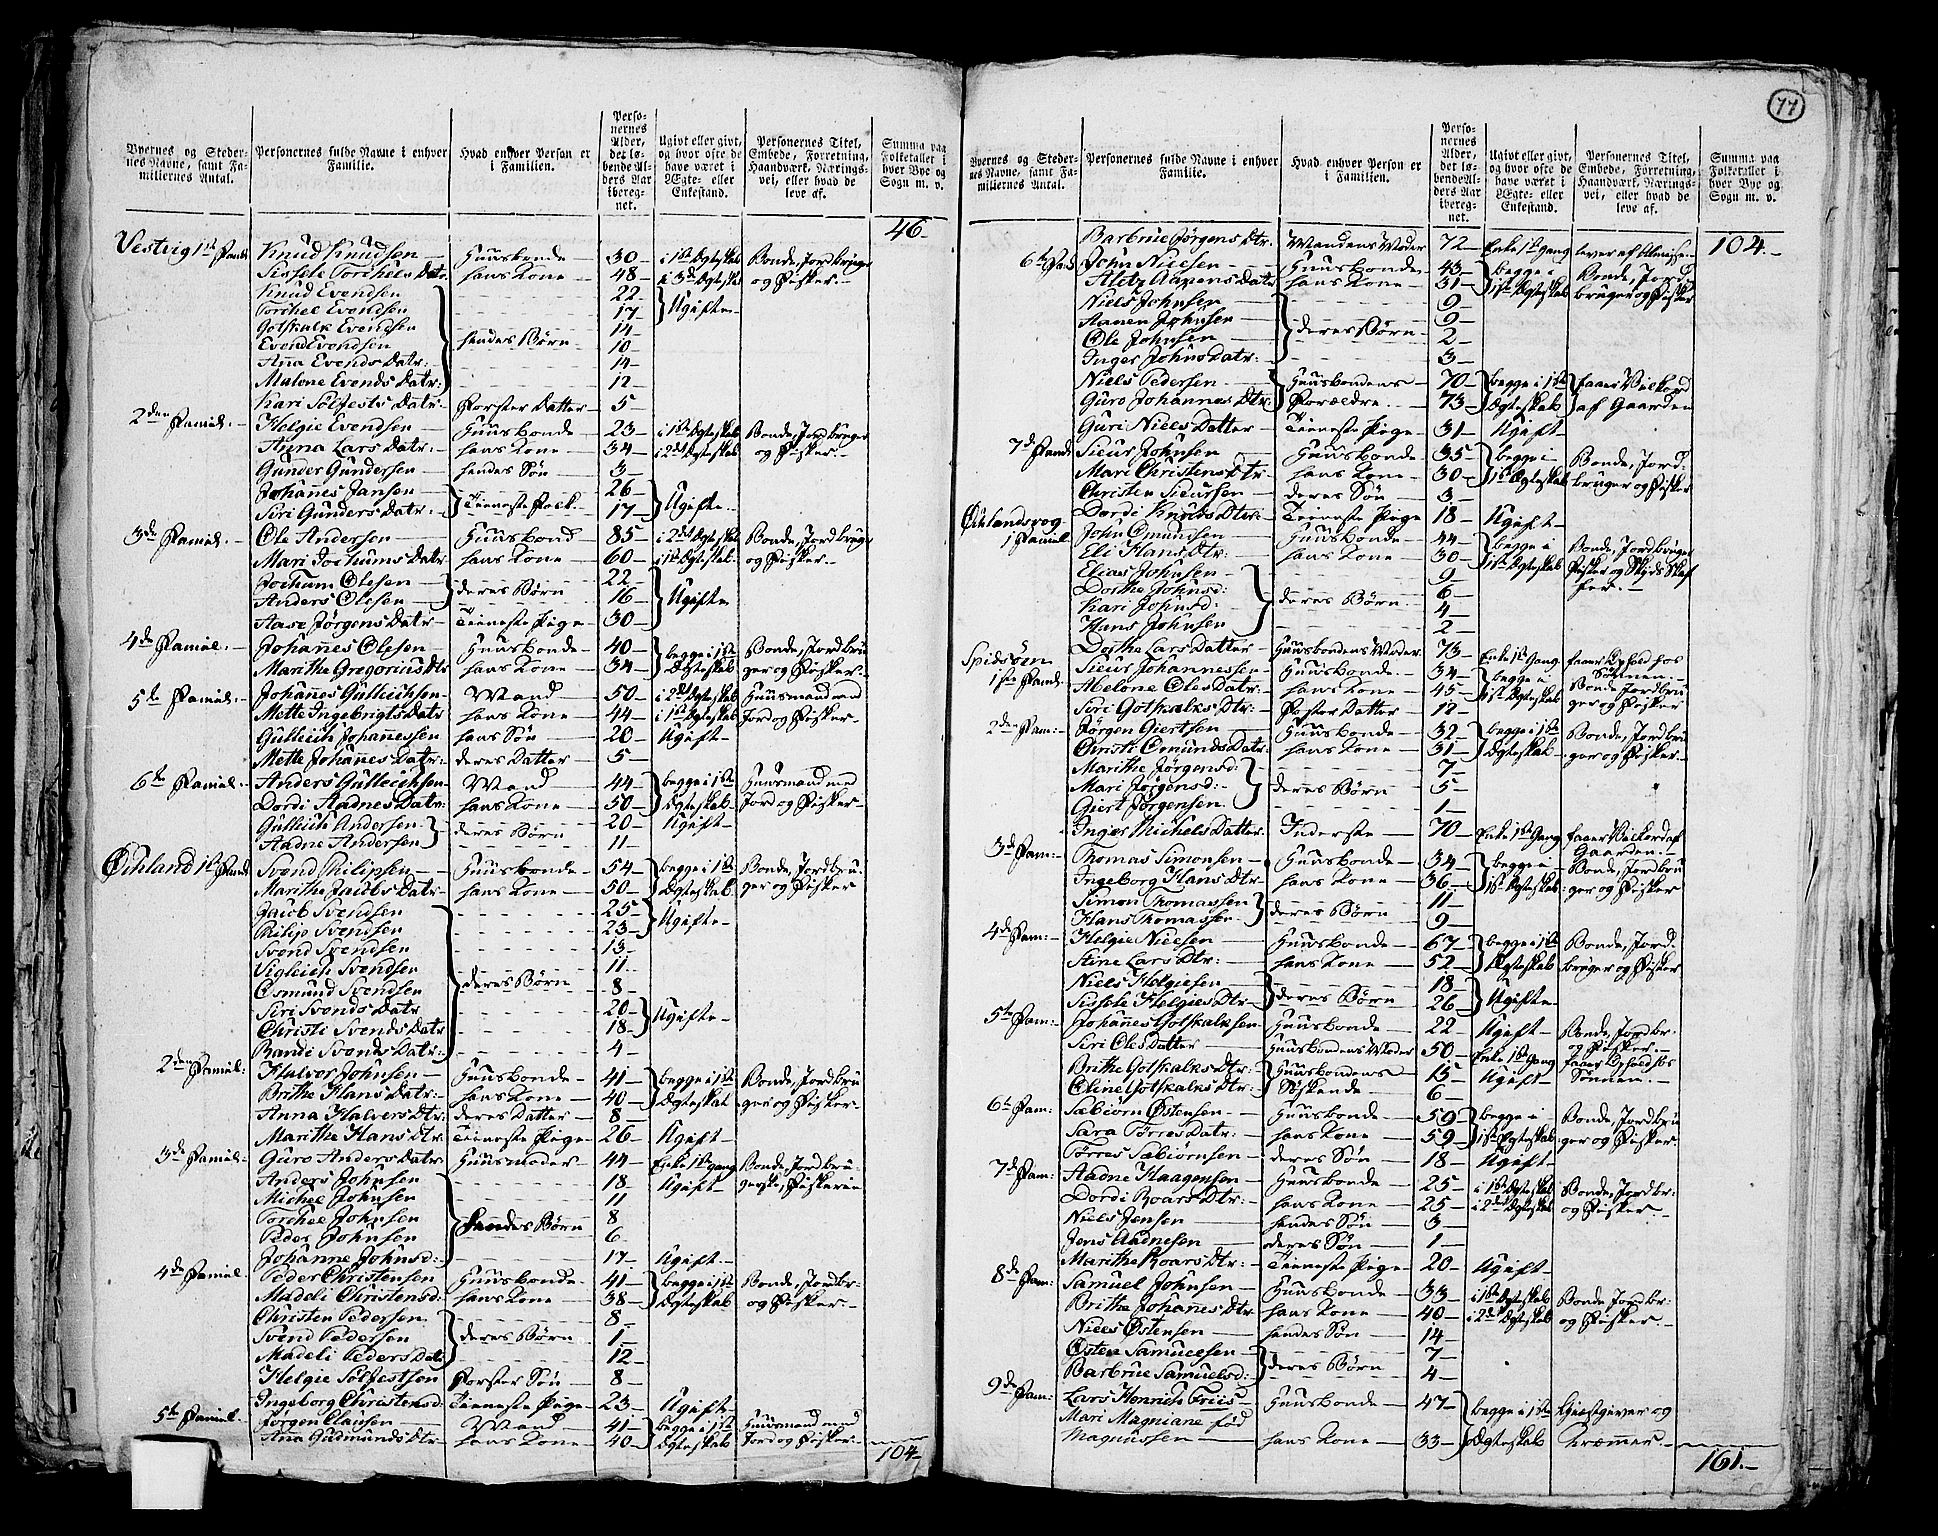 77
Byernes og Stedernes Navne, samt Familiernes Antal.
Personernes fulde Navne i enhver Familie.
Hvad enhver Person er i Familien.
Personernes Alder, det løbende Alders Aar iberegnet.
Ugivt eller givt, og hvor ofte de have været i Ægte- eller Enkestand.
Personernes Titel, Embede, Forretning, Haandværk, Næringsvei, eller hvad de leve af.
Summa paa Folketallet i hver Bye og Sogn m. v.
46.
Vestvig 1ste Famil Knud Knudsen Huusbonde 30 i 1ste Ægteskab Bonde, Jordbruger
Sissele Torchels Datr hans Kone 48 i 3de Ægteskab og Fisker
Knud Evendsen 22 Ugifte
Torchel Evendsen 17
Gotskalk Evendsen 14
Evend Evendsen hendes Børn 10
Anna Evends Datr: 14
Malene Evends Datr: 12
Kari Solfests Datr: Forster Datter 5
2den Famil. Helgie Evendsen Huusbonde 23 i 1ste Ægteskab Bonde, Jordbruger
Anna Lars Datr: hans Kone 34 i 2det Ægteskab og Fisker
Gunder Gundersen hendes Søn 3
Johannes Jansen Tieneste Folk 26 Ugifte
Siri Gunders Datr: 17
3de Famiel. Ole Andersen Huusbond 85 i 2det Ægteskab Bonde, Jordbruger
Mari Jochums Datr hans Kone 60 i 1ste Ægteskab og Fisker
Jochum Olesen deres Børn 22 Ugifte
Anders Olesen 16
Aase Jørgens Datr Tieneste Pige 30
4de Famiel. Johannes Olesen Huusbonde 40 begge i 1ste Bonde, Jordbru
Marithe Gregorius Dtr hans Kone 34 Ægteskab ger og Fisker
5te Famiel. Johannes Gulleichsen Mand 50 i 2det Ægteskab Huusmand med
Mette Ingebrigts Datr hans Kone 44 i 1ste Ægteskab Jord og Fisker
Gulleich Johannessen hans Søn 20 Ugift
Mette Johannes Datr: deres Datter 5
6te Famiel. Anders Gulleichsen Mand 44 begge i 1ste Huusmand med
Dordi Aadnes Datr: hans Kone 50 Ægteskab Jord og Fisker
Gulleich Andersen deres Børn 20 Ugift
Aadne Andersen 11
Øihland 1ste Famil Svend Philipsen Huusbonde 54 begge i 1ste Bonde, Jordbru
Marithe Jacobs Datr hans Kone 50 Ægteskab ger og Fisker
Jacob Svendsen 25 Ugifte
Philip Svendsen 23
Svend Svendsen 13
Sigleich Svendsen 11
Osmund Svendsen deres Børn 8
Siri Svends Datr 20 Ugifte
Christi Svends Datr 18
Randi Svends Datr: 4
2den Famiel. Halvor Johnsen Huusbonde 41 begge i 1ste Bonde, Jordbru
Brithe Hans Datr: hans Kone 40 Ægteskab ger og Fisker
Anna Halvors Dtr: deres Datter 8
Marithe Hans Dtr: Tieneste Pige 26 Ugift
3de Famiel. Guro Anders Datr Huusmoder 44 Enke 1ste gang Bonde, Jordbru
Anders Johnsen 18 Ugift gerske, Fiskerie
Michel Johnsen 11
Torchel Johnsen hendes Børn 8
Peder Johnsen 6
Johanne Johnsd: 17 Ugift
4de Famiel Peder Christensen Huusbonde 41 begge i 1ste Bonde, Jordbr:
Madeli Christensd: hans Kone 38 Ægteskab og Fisker
Christen Pedersen 8
Svend Pedersen deres Børn 1
Madeli Peders Dat: 12
Helgie Solfestsen Forster Søn 8
Ingeborg Christensd: Tieneste Pige 23 Ugift
5te Famiel. Jørgen Clausen Mand 41 begge i 1ste Huusmand med
Ana Gudmunds Dtr hans Kone 40 Ægteskab Jord og Fisker
104
Byernes og Stedernes Navne, samt Familiernes Antal.
Personernes fulde Navne i enhver Familie.
Hvad enhver Person er i Familien.
Personernes Alder, det løbende Alders Aar iberegnet.
Ugivt eller givt, og hvor ofte de have været i Ægte- eller Enkestand.
Personernes Titel, Embede, Forretning, Haandværk, Næringsvei, eller hvad de leve af.
Summa paa Folketallet i hver Bye og Sogn m. v.
Barbrue Jørgens Dtr. Mandens Moder 72 Enke 1ste gang lever af Almisse 104
6te Famil John Nielsen Huusbonde 43 begge i Bonde, Jord
Aanens Datr hans Kone 31 1ste Ægteskab bruger og Fisker
Niels Johnsen 9
Aanen Johnsen deres Børn 9
Ole Johnsen 2
Inger Johns Datr: 3
Niels Pedersen Huusbondens 70 begge i 1ste faaer Vilkaar
Guro Johannes Dtr: Forældre 73 Ægteskab af Gaarden
Guri Niels Datter Tieneste Pige 31 Ugift
7de Famil Sieur Johnsen Huusbonde 35 begge i Bonde, Jord
Mari Christens Dtr. hans Kone 30 1ste Ægteskab bruger og Fisker
Christen Sieursen deres Søn 3
Dordi Knuds Dtr: Tieneste Pige 18 Ugift
Øihlandsvog
1 Famiel John Omundsen Huusbonde 44 begge i Bonde, Jordbruger
Eli Hans Dtr: hans Kone 30 1ste Ægteskab Fisker og Skyds Skaf
Elias Johnsen 9 fer.
Dorthe Johnsd: 6
Kari Johnsd: deres Børn 4
Hans Johnsen 2
Dorthe Lars Datter Huusbondens Moder 73 Enke 1ste Gang faaer Ophold hos
Spidsøen Sønnen.
1ste Famil. Sieur Johannessen Huusbonde 34 begge i Bonde Jordbru
Abelone Oles Datr: hans Kone 45 1ste Ægteskab ger og Fisker
Siri Gotskalks Dtr: Foster Datter 12
2den Fam: Jørgen Giertsen Huusbonde 32 begge i 1ste Bonde, Jordbru
Omunds Datr: hans Kone 31 Ægteskab ger og Fisker
Marithe Jørgensd: 7
Mari Jørgensd: deres Børn 5
Giert Jørgensen 1
Inger Michels Datter Inderste 70 Enke 1ste Gang faaer Vilkor af
Gaarden.
3de Fam: Thomas Simonsen Huusbonde 34 begge i Bonde, Jordbru
Ingeborg Hans Dtr hans Kone 36 1ste Ægteskab ger og Fisker
Simon Thomassen deres Børn 11
Hans Thomassen 9
4de Fam: Helgie Nielsen Huusbonde 67 begge i 1ste Bonde, Jord
Stine Lars Dtr: hans Kone 52 Ægteskab bruger og Fisker
Niels Helgiesen deres Børn 18 Ugifte
Sissele Helgies Dtr 26
5te Fam: Johannes Gotskalksen Huusbonde 22 Ugift Bonde, Jordbr.
Siri Oles Datter Huusbondens Moder 50 Enke 1ste Gang og Fisker
Brithe Gotskalks Dtr: Huusbondens 15 Ugift
Oline Gotskalks Dtr: Søskende 6 Sønnen.
6te Fam: Sæbiørn Østensen Huusbonde 59 begge i Bonde, Jordbru
Sara Torres Datr: hans Kone 59 1ste Ægteskab ger og Fisker
Torres Sæbiørnsen deres Søn 18 Ugift
7de Fam: Aadne Haagensen Huusbonde 25 i 1ste Ægteskab Bonde, Jordbr.
Dordi Roars Dtr: hans Kone 25 i 2det Ægteskab og Fisker
Niels Jensen hendes Søn 3
Jens Aadnesen deres Søn 1
Marithe Roars Dtr: Tieneste Pige 20 Ugift
8de Fam: Samuel Johnsen Huusbonde 33 i 1ste Ægteskab Bonde Jordbr:
Brithe Johanes Dtr hans Kone 40 i 2det Ægteskab og Fisker
Niels Østensen hendes Søn 14
Østen Samuelsen deres Børn 7
Barbrue Samuelsd: 4
9de Fam: Lars Henrich Friis Huusbonde 47 begge i 1ste Giestgiver og
Mari Magniane fød
Magnussen hans Kone 33 Ægteskab Kræmmer
161.